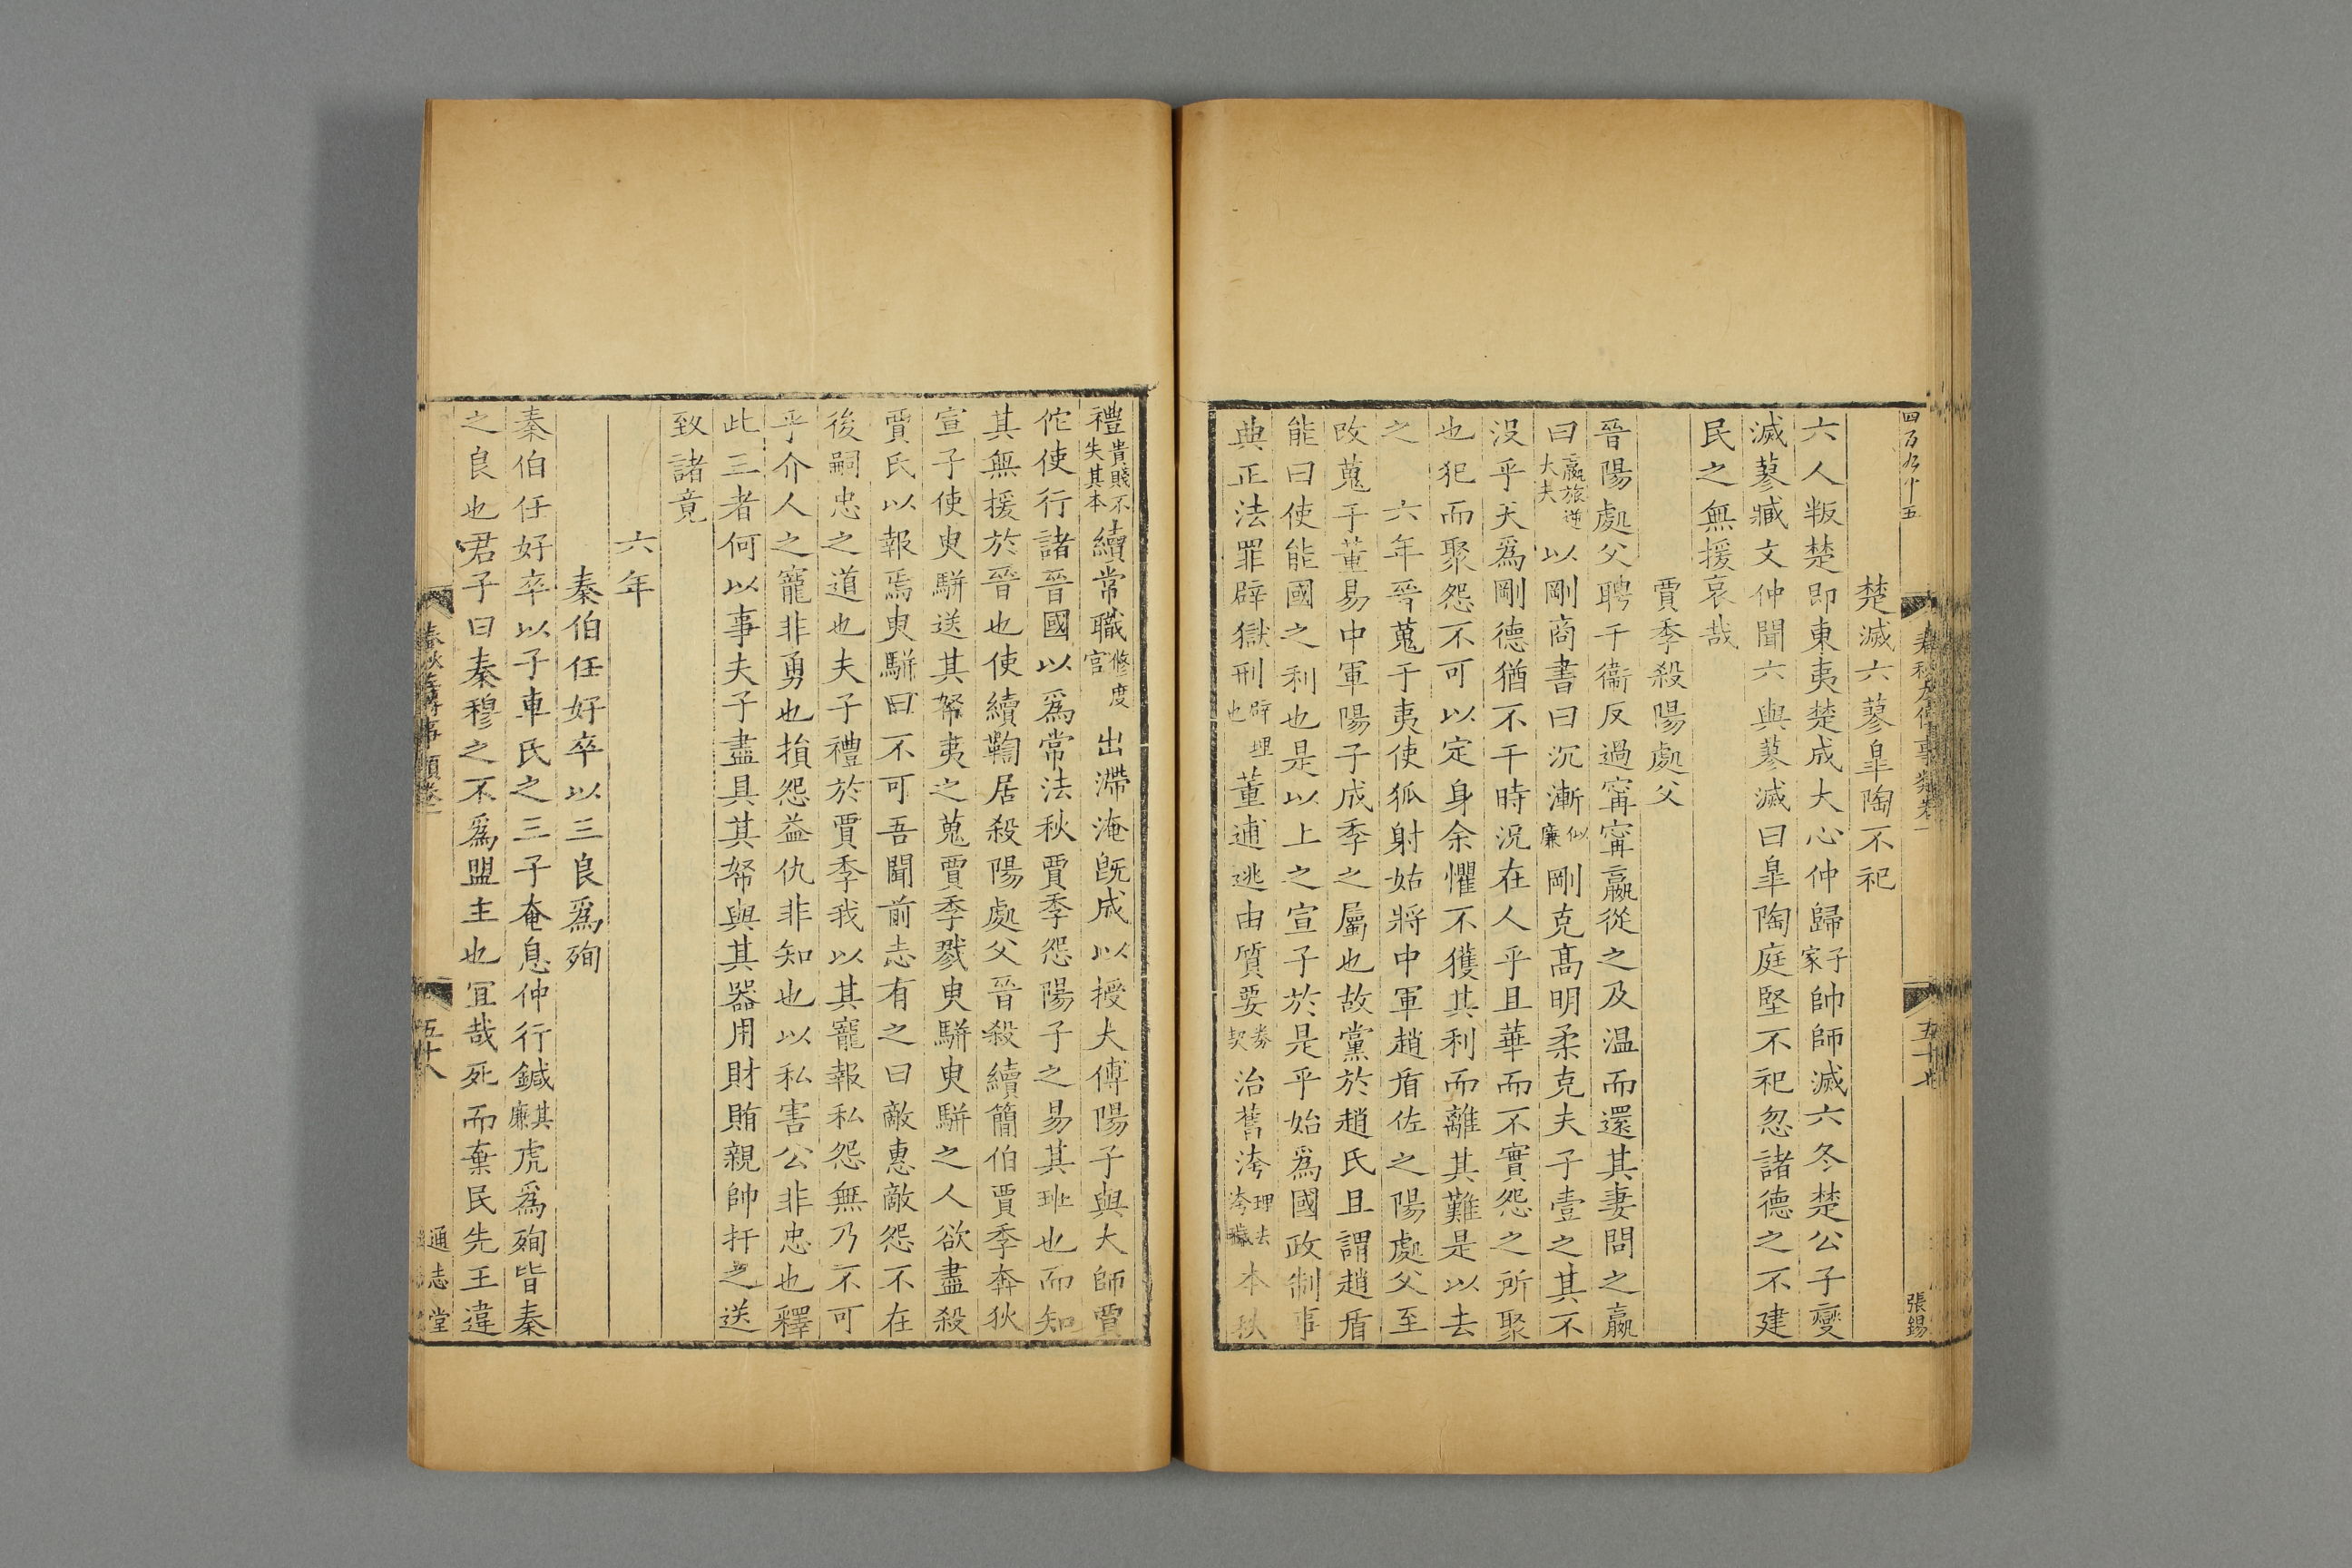 四百九十五
五十七
張錫
楚滅六蓼臯陶不祀
六人叛楚即東夷楚成大心仲歸子家帥師滅六冬楚公子燮
滅蓼臧文仲聞六與蓼滅曰臯陶庭堅不祀忽諸德之不建
民之無援哀哉
賈季殺陽處父
晉陽處父聘于衞反過甯甯嬴從之及温而還其妻問之嬴
曰嬴旅逆大夫以剛商書曰沉漸似廉剛克高明柔克夫子壹之其不
没乎天爲剛德猶不干時況在人乎且華而不實怨之所聚
也犯而聚怨不可以定身余懼不獲其利而離其難是以去
之 六年晉蒐于夷使狐射姑將中軍趙盾佐之陽處父至
改蒐于董易中軍陽子成季之屬也故黨於趙氏且謂趙盾
能曰使能國之利也是以上之宣子於是乎始爲國政制事
典正法罪辟獄刑辟理也董逋逃由質要券契治舊洿理去洿穢本秩
禮貴賤不失其本續常職修廢官出滯淹旣成以授大傅陽子與大師賈
佗使行諸晉國以爲常法秋賈季怨陽子之易其班也而知
其無援於晉也使續鞫居殺陽處父晉殺續簡伯賈季奔狄
宣子使臾駢送其帑夷之蒐賈季戮臾駢臾駢之人欲盡殺
賈氏以報焉臾駢曰不可吾聞前志有之曰敵惠敵怨不在
後嗣忠之道也夫子禮於賈季我以其寵報私怨無乃不可
乎介人之寵非勇也損怨益仇非知也以私害公非忠也釋
此三者何以事夫子盡具其帑與其器用財賄親帥扞之送
致諸竟
六年
秦伯任好卒以三良爲殉
秦伯任好卒以子車氏之三子奄息仲行鍼其廉虎爲殉皆秦
之良也君子曰秦穆之不爲盟主也宜哉死而棄民先王違
春秋左傳事類卷一
五十八
通志堂